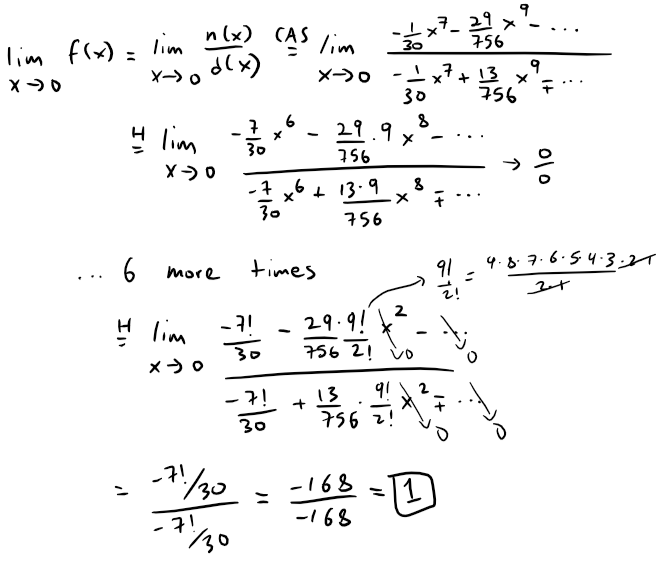 lim_{x→0} f(x) = lim_{x→0} n(x)/d(x) CAS= lim_{x→0} (-1/30 x^7 - 29/756 x^9 - ...)/(-1/30 x^7 + 13/756 x^9 ∓ ...)
H= lim_{x→0} (-7/30 x^6 - 29/756 · 9 x^8 - ...)/(-7/30 x^6 + 13·9/756 x^8 ∓ ...) → 0/0
... 6 more times
9!/2! = 9·8·7·6·5·4·3·2·1/2·1
H= lim_{x→0} (-7!/30 - 29·9!/756 2! x^2 - ...)/(-7!/30 + 13/756 · 9!/2! x^2 ∓ ...) → 0 → 0 → 0 → 0
= (-7!/30)/(-7!/30) = -168/-168 = 1